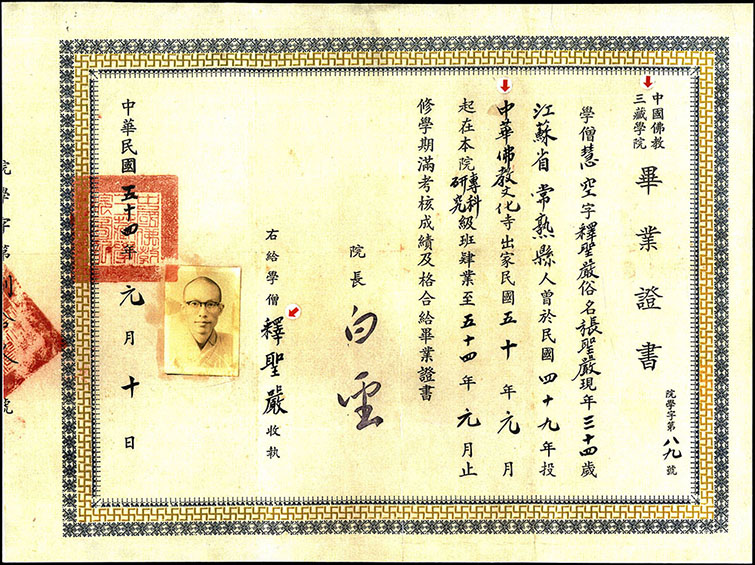 中國佛教
三藏學院
畢業證書
院學字第八九號
學僧慧空字釋聖嚴俗名張聖嚴現年三十四歲
江蘇省常熟縣人曾於民國四十九年投
中華佛教文化寺出家民國五十年元月
起在本院專科研究級班肄業至五十四年元月止
修學期滿考核成績及格合給畢業證書
院長白聖
右給學僧釋聖嚴收執
中華民國五十四年元月十日
院學字第
號